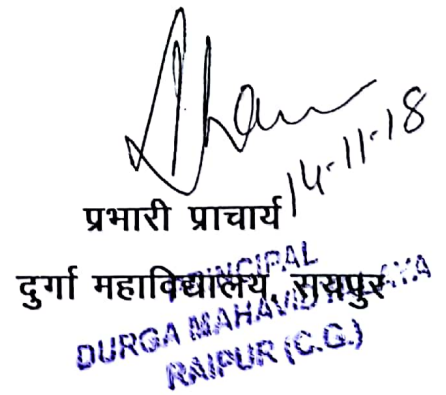 14-11-18
प्रभारी प्राचार्य
दुर्गा महाविद्यालय, रायपुर
PRINCIPAL
DURGA MAHAVIDYALAYA
RAIPUR (C.G.)